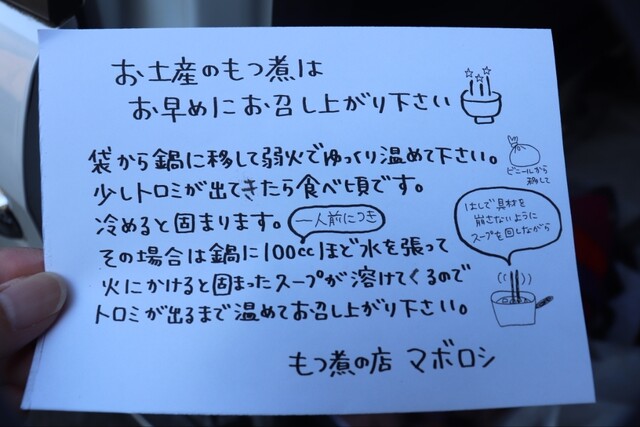 お土産のもつ煮は
お早めにお召し上がり下さい
袋から鍋に移して弱火でゆっくり温めて下さい。
ビニールから
移して
少しトロミが出てきたら食べ頃です。
冷めると固まります。
一人前につき
はしで具材を
崩さないように
スープを回しながら
その場合は鍋に100ccほど水を張って
火にかけると固まったスープが溶けてくるので
トロミが出るまで温めてお召し上がり下さい。
もつ煮の店 マボロシ